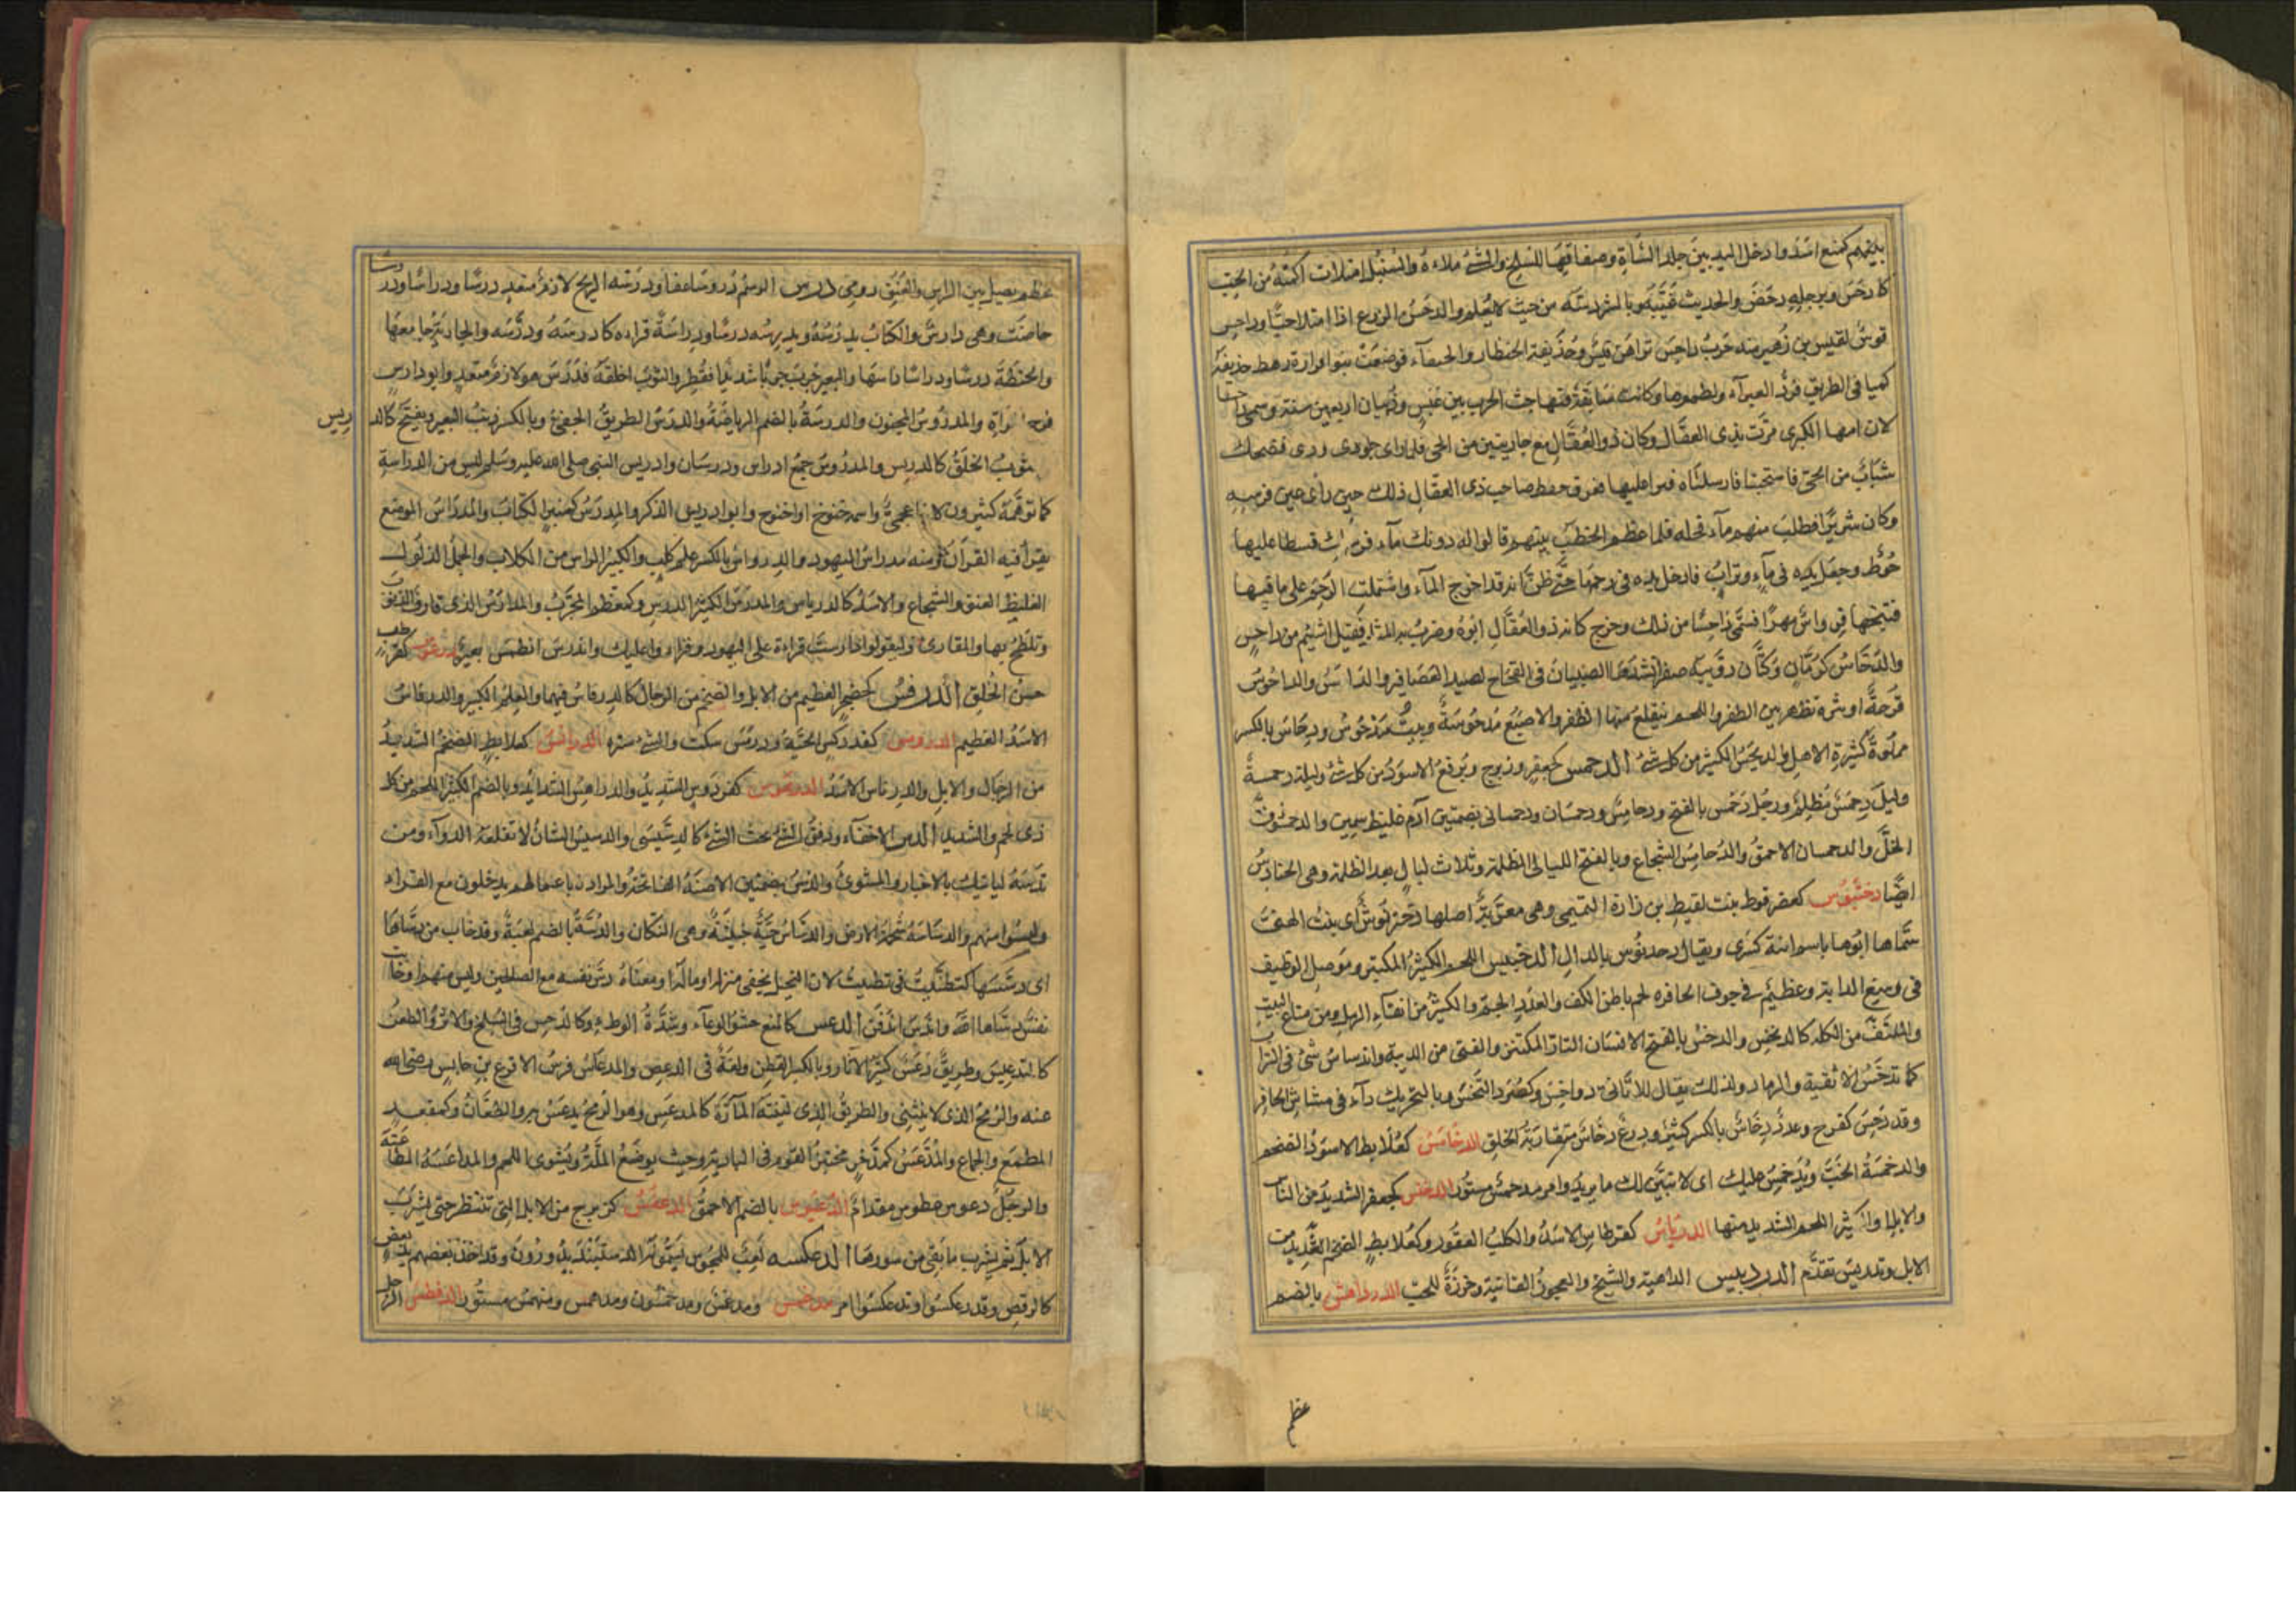 بينهم كمنع افسد وادخل اليد بين جلد الشاة وصفاقها للسلخ والشئ ملاءه والسنبل امتلأت اكمته من الحب
كادحس وبرجله دحض والحديث غيبه وبالشر دسه من حيث لا يعلم والدحس الزرع اذا امتلا حبا وداحس
فرس لقيس بن زهير ومنه حرب داحس تراهن قيس وحذيفة الخطار والحنفاء فوضعت بنو فزارة رهط حذيفة
كمينا فى الطريق فردوا الغبراء ولطموها وكانت سابقة فهاجت الحرب بين عبس وذبيان اربعين سنة وسمى داحسا
لان امها الكبرى مرت بذى العقال وكان ذو العقال مع جاريتين من الحى فلما راى جلوى ودى فضحك
شباب من الحى فاستحيتا فارسلتاه فنزا عليها فعرف حوط صاحب ذى العقال ذلك حين راى عين فرسه
وكان شريرا فطلب منهم ماء فحله فلما عظم الخطب بينهم قالوا له دونك ماء فرسك فسطا عليها
حوط وجعل يده فى ماء وتراب فادخل يده فى رحمها حتى ظن انه قد اخرج الماء واشتملت الرحم على ما فيها
فنتجها قرواش مهرا فسمى داحسا من ذلك وخرج كانه ذو العقال ابوه وضرب به المثل فقيل اشئم من داحس
والدحاس كرمان وكتان دويبة صفراء تشدها الصبيان فى الفخاخ لصيد العصافير والداحس والداحوس
قرحة او بثرة تظهر بين الظفر واللحم فيقلع منها الظفر والاصبع مدحوسة وبيت مدحوس ودحاس بالكسر
مملوة كثيرة الاهل والديحس الكثير من كل شئ الدحمس كجعفر وزبرج وبرقع الاسود من كل شئ وليلة دحمسة
وليل دحمس مظلم ورجل دحمس بالفتح ودحامس ودحمسان ودحمسانى بضمتين آدم غليظ سمين والدحمس زق
الخل والدحمسان الاحمق والدحامس الشجاع وبالفتح الليالى المظلمة وثلاث ليال بعد الظلم وهى الحنادس
ايضا دختنوس كعضرفوط بنت لقيط بن زرارة التميمى وهى معربة اصلها دختر نوش اى بنت الهنى
سماها ابوها باسم ابنة كسرى ويقال دخدنوس بالدال الدخيس اللحم الكثير المكتنز وموصل الوظيف
فى رسغ الدابة وعظيم فى جوف الحافر ولحم باطن الكف والعدد الجم والكثير من انقاء الرمل ومن متاع البيت
والملتف من الكلا كالديخس والدخس بالفتح الانسان التار المكتنز والفتى من الدببة واندساس شئ فى التراب
كما تدخس الاثفية والرماد ولذلك يقال للاثافى دواخس وكصرد التخس وبالتحريك داء فى مشاش الحافر
وقد دخس كفرح وعدد دخاس بالكسر كثير ودرع دخاس متقاربة الخلق الدخامس كعلابط الاسود الضخم
والدخمسة الخب ويدخمس عليك اى لا يبين لك ما يريد وامر مدخمس مستور الدخنس كجعفر الشديد من الناس
والابل او الكثير اللحم الشديد منها الدرباس كقرطاس الاسد والكلب العقور وكعلابط الضخم الشديد من
الابل وتدربس تقدم الدردبيس الداهية والشيخ والعجوز الفانية وخرزة للحب الدرداقس بالضم
عظم
عظم يصل بين الراس والعنق رومى درس الرسم دروسا عفا ودرسته الريح لازم متعد درسا ودراسا ودر
درسا
حاضت وهى دارس والكتاب يدرسه ويدرسه درسا ودراسة قراءه كادرسه ودرسه والجارية جامعها
والحنطة درسا ودراسا داسها والبعير جرب جربا شديدا فقطر والثوب اخلقه فدرس هو لازم متعد وابو دارس
فرج المراة والمدروس المجنون والدرسة بالضم الرياضة والدرس الطريق الخفى وبالكسر ذنب البعير ويفتح كالد
ريس
وثوب الخلق كالدريس والمدروس جمع ادراس ودرسان وادريس النبى صلى الله عليه وسلم ليس من الدراسة
كما توهمه كثيرون لانه اعجمى واسمه خنوخ او اخنوخ وابو ادريس الذكر والمدرس كمنبر الكتاب والمدراس الموضع
يقرأ فيه القرآن ومنه مدراس اليهود والدرواس بالكسر علم كلب والكبير الراس من الكلاب والجمل الذلول
الغليظ العنق والشجاع والاسد كالدرياس والمدرس الكثير الدرس وكمعظم المجرب والمدارس الذى قارف الذنوب
وتلطخ بها والمقارئ وليقولوا دارست قراءة على اليهود وقرءوا عليك واندرس انطمس بعير درعوس كقرطعب
حسن الخلق الدرفس كحضجر العظيم من الابل والضخم من الرجال كالدرفاس فيهما والعلم الكبير والدرفاس
الاسد العظيم الدرومس كفدوكس الحية ودرمس سكت والشئ ستره الدرامس كعلابط الضخم الشديد
من الرجال والابل والدرناس الاسد الدرهوس كفردوس الشديد والدراهس الشدائد وبالضم الكثير اللحم من كل
ذى لحم والشديد الدس الاخفاء ودفن الشئ تحت الشئ كالدسيسى والدسيس الصنان لا تقلعه الدواء ومن
تدسه لياتيك بالاخبار والمشوى والدسس بضمتين الاصنة الفائحة والمراءون باعمالهم يدخلون مع القراء
وليسوا منهم والدساسة شحمة الارض والدساس حية خبيثة وهى النكاز والدسة بالضم لعبة وقد خاب من دساها
اى دسسها كتظنيت فى تظننت لان البخيل يخفى منزله وماله او معناه دس نفسه مع الصالحين وليس منهم او خاب
نفس دساها الله واندس اندفن الدعس كالمنع حشو الوعاء وشدة الوطء وكالدحس فى السلخ والاثر والطعن
كالتدعيس وطريق دعس كثير الآثار وبالكسر القطن ولغة فى الدعص والمدعاس فرس الاقرع بن حابس رضى الله
عنه والرمح الذى لا ينثنى والطريق الذى لينته المارة كالمدعس وهو الرمح يدعس به والطعان وكمقعد
المطمع والجماع والمدعس كمدخر مختبز القوم فى البادية وحيث يوضع الملة ويشوى اللحم والمداعسة المطاعنة
والرجل دعوس غطوس مقدام الدعبوس بالضم الاحمق الدعفس كزبرج من الابل التى تنتظر حتى يشرب
الابل ثم يشرب ما بقى من سورها الدعكسة لعب للمجوس يسمونه الدستبند يدورون وقد اخذ بعضهم يد بعض
كالرقص وقد دعكسوا وتدعكسوا امر مدغمس ومدغمس ومدخمس ومدهمس ومنهمس مستور الدفطس الرجل